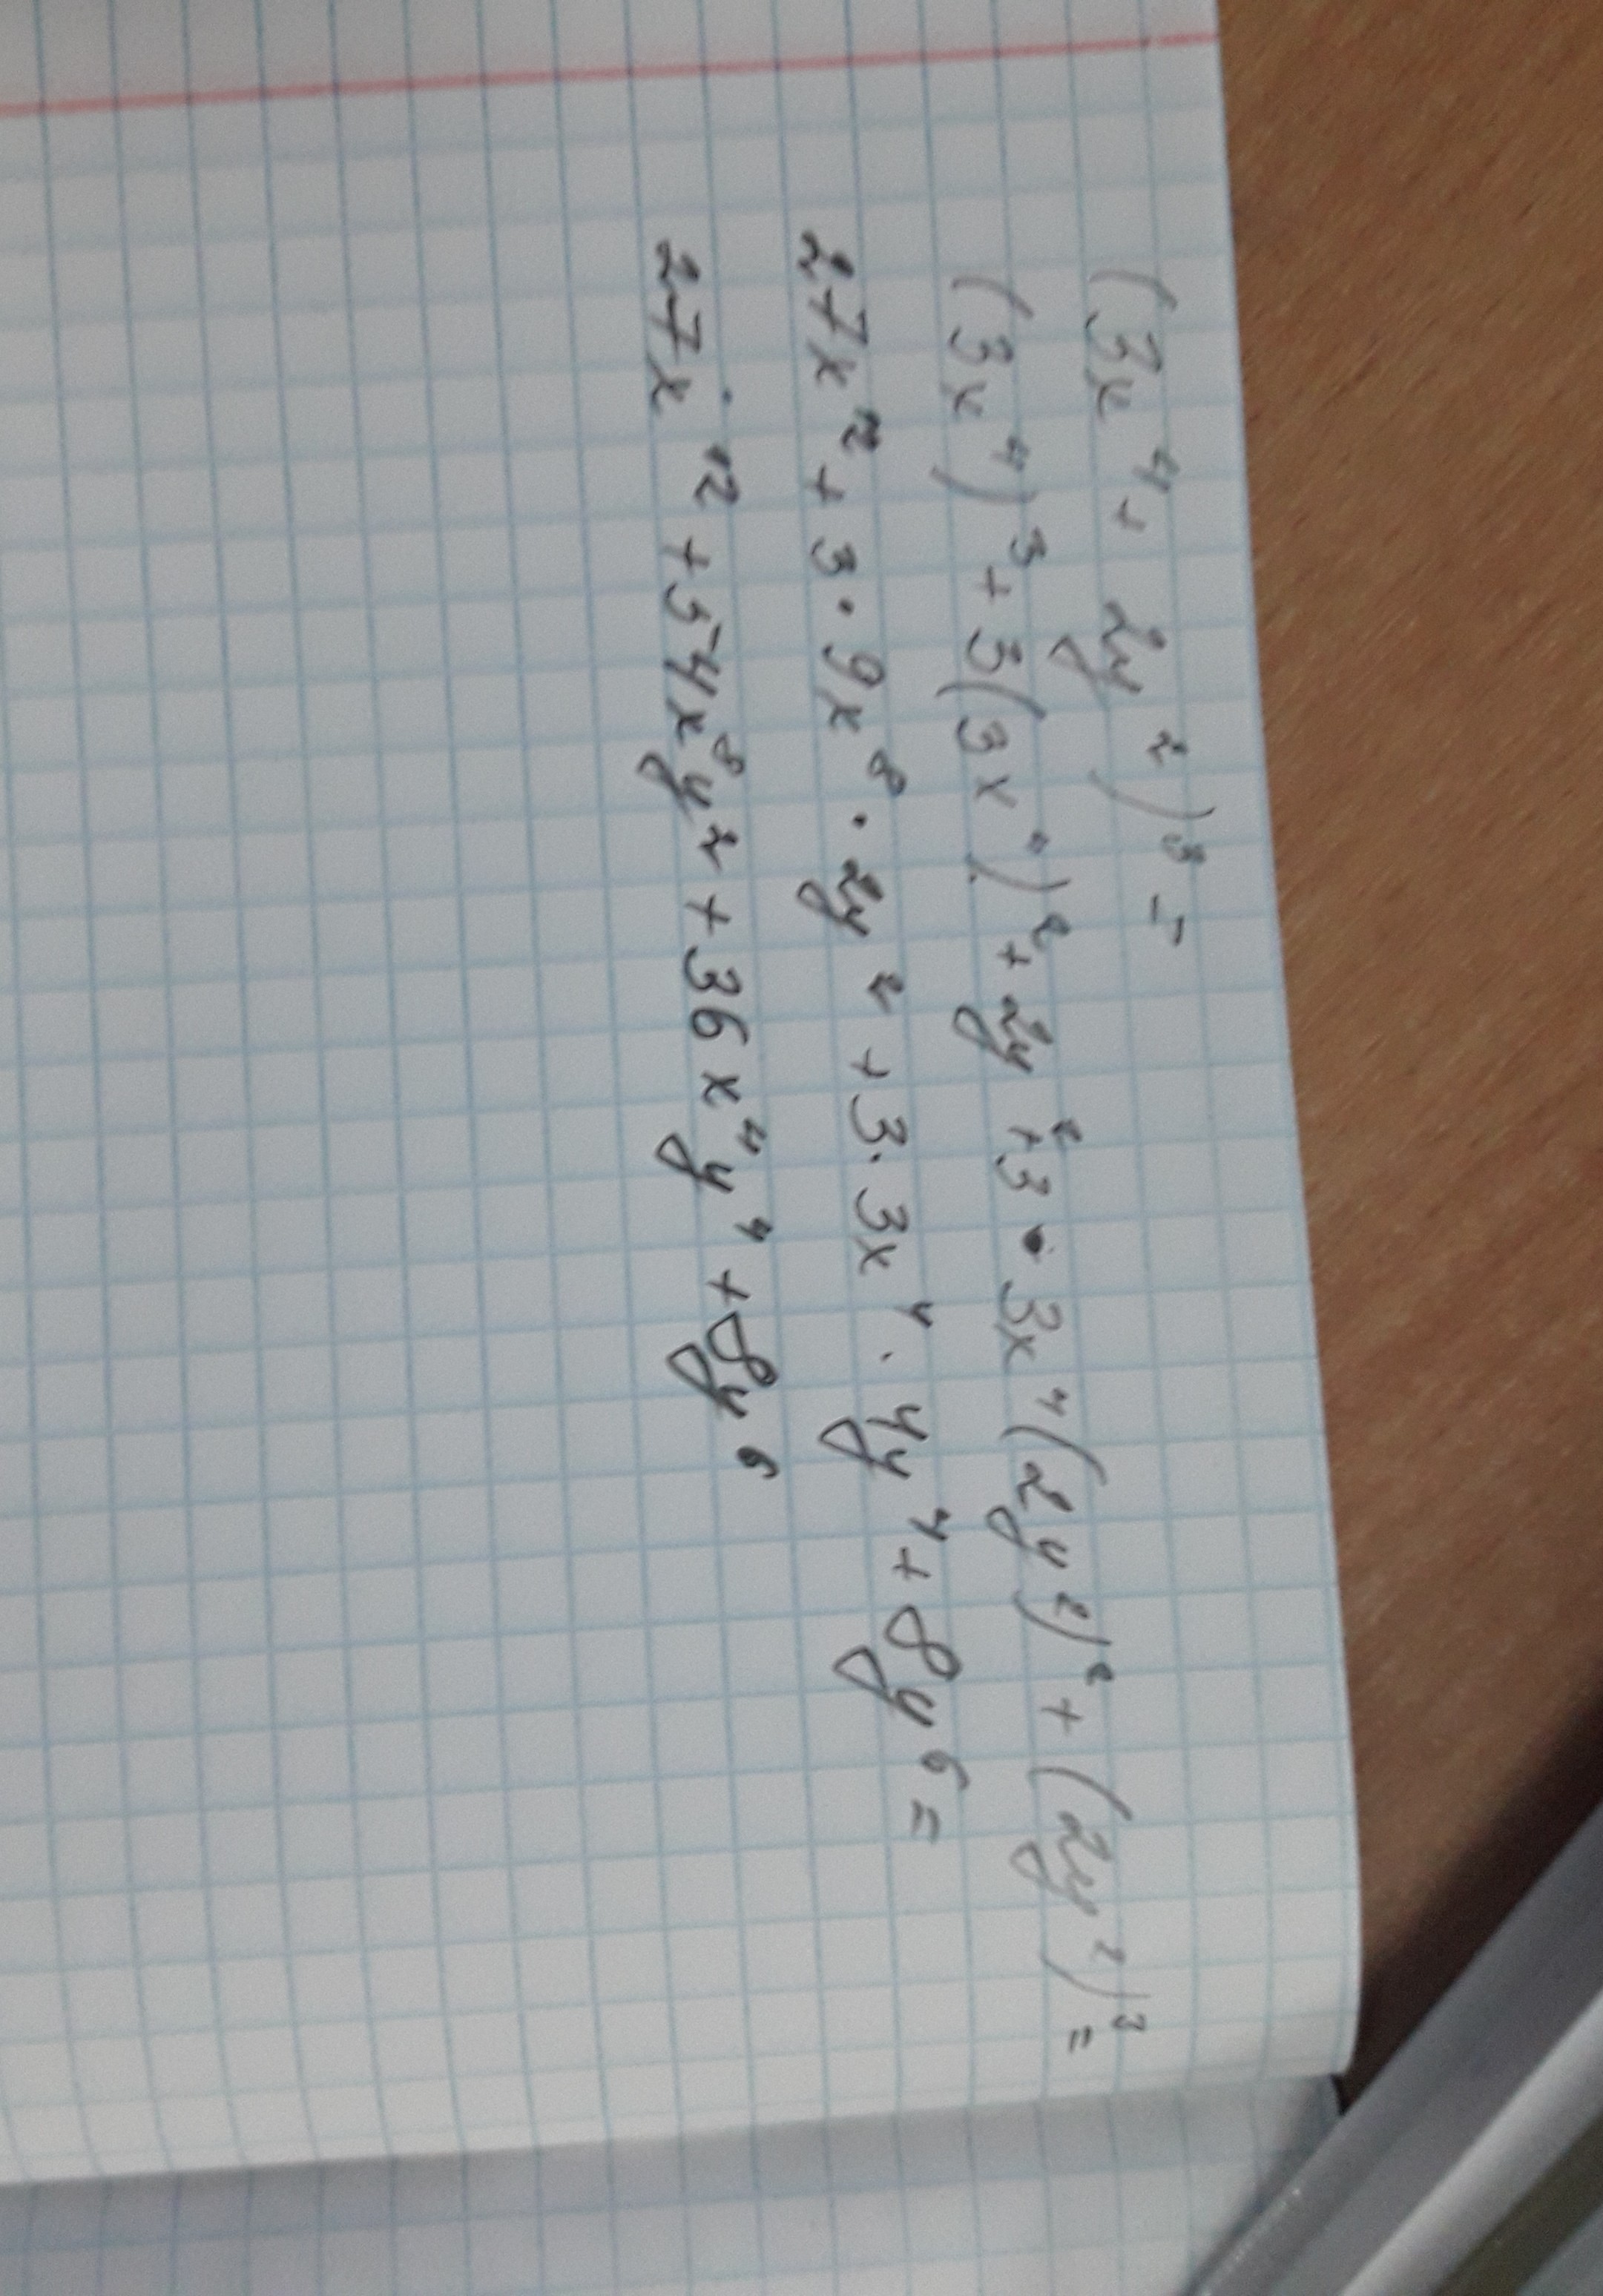 (3x⁴ + 2y²)³ =
(3x⁴)³ + 3(3x⁴)² + 2y² + 3 · 3x⁴(2y²)² + (2y²)³ =
27x¹² + 3 · 9x⁸ · 2y² + 3 · 3x⁴ · 4y⁴ + 8y⁶ =
27x¹² + 54x⁸y² + 36x⁴y⁴ + 8y⁶